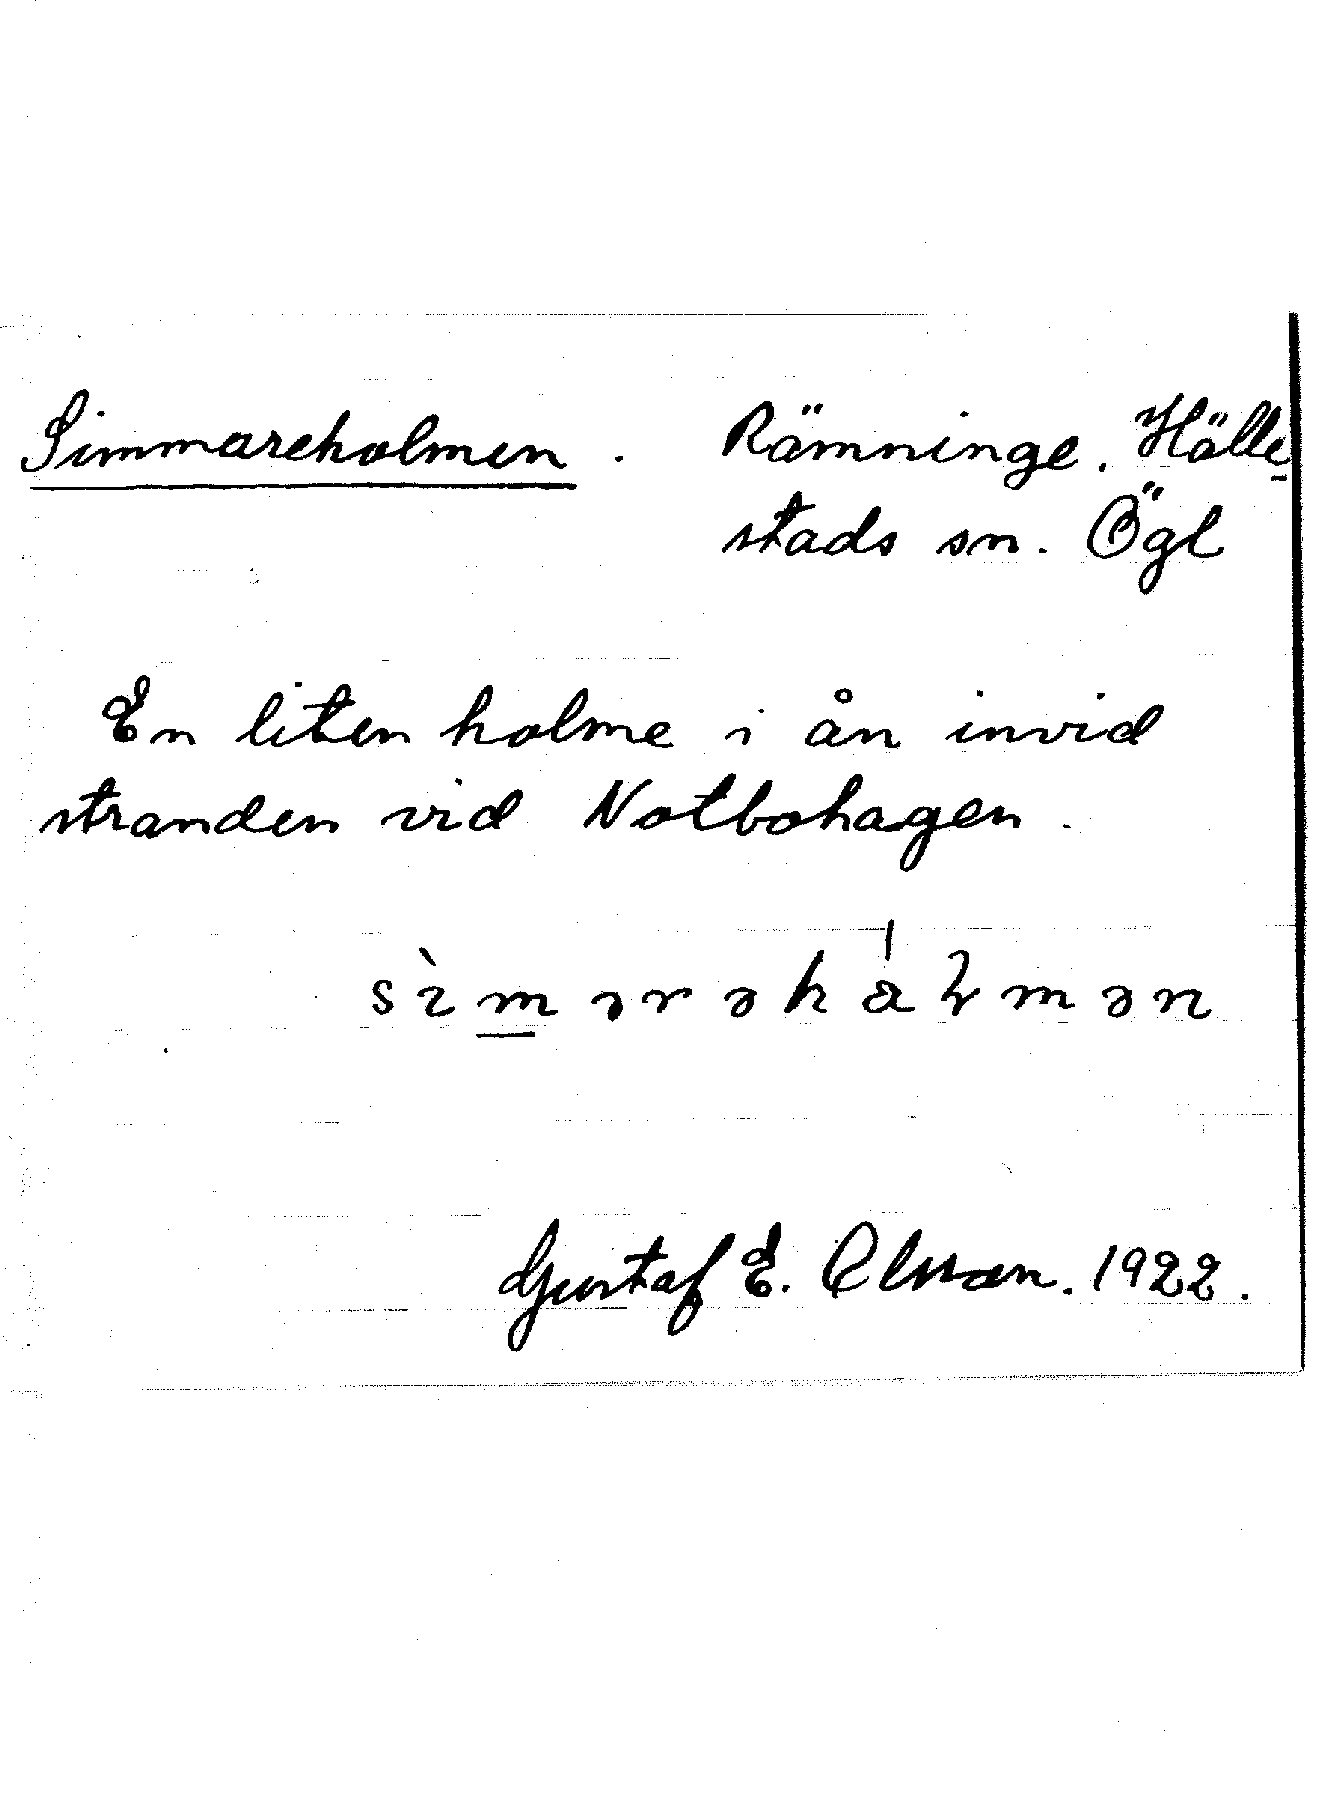 Simmareholmen. Rämninge. Hälle-
stads sn. Ögl
En liten holme i ån invid
stranden vid Notbohagen.
sìmərəhåɫmən
Gustaf E. Olsson. 1922.